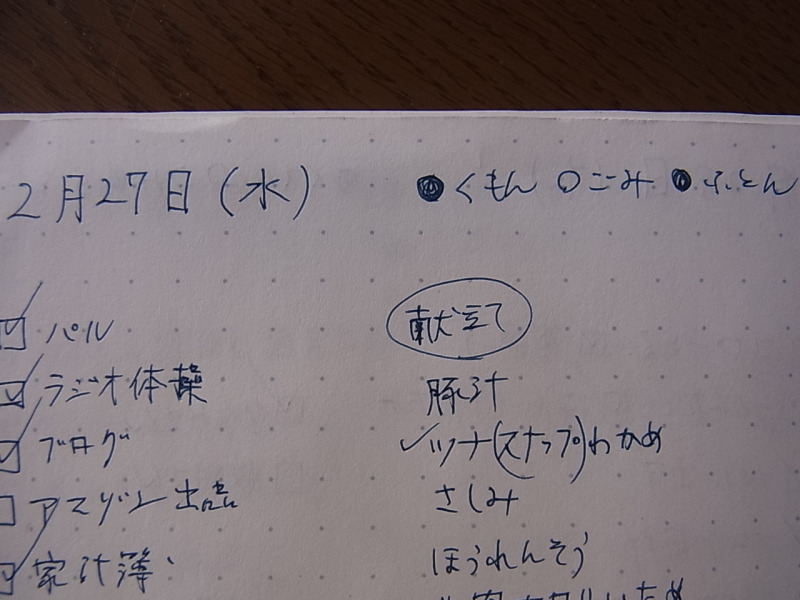 2月27日(水) ●くもん ○ごみ ●ふとん
☑ パル
☑ ラジオ体操
☑ ブログ
☐ アマゾン出品
☑ 家計簿
献立て
豚汁
✓ツナ(スナップ)わかめ
さしみ
ほうれんそう